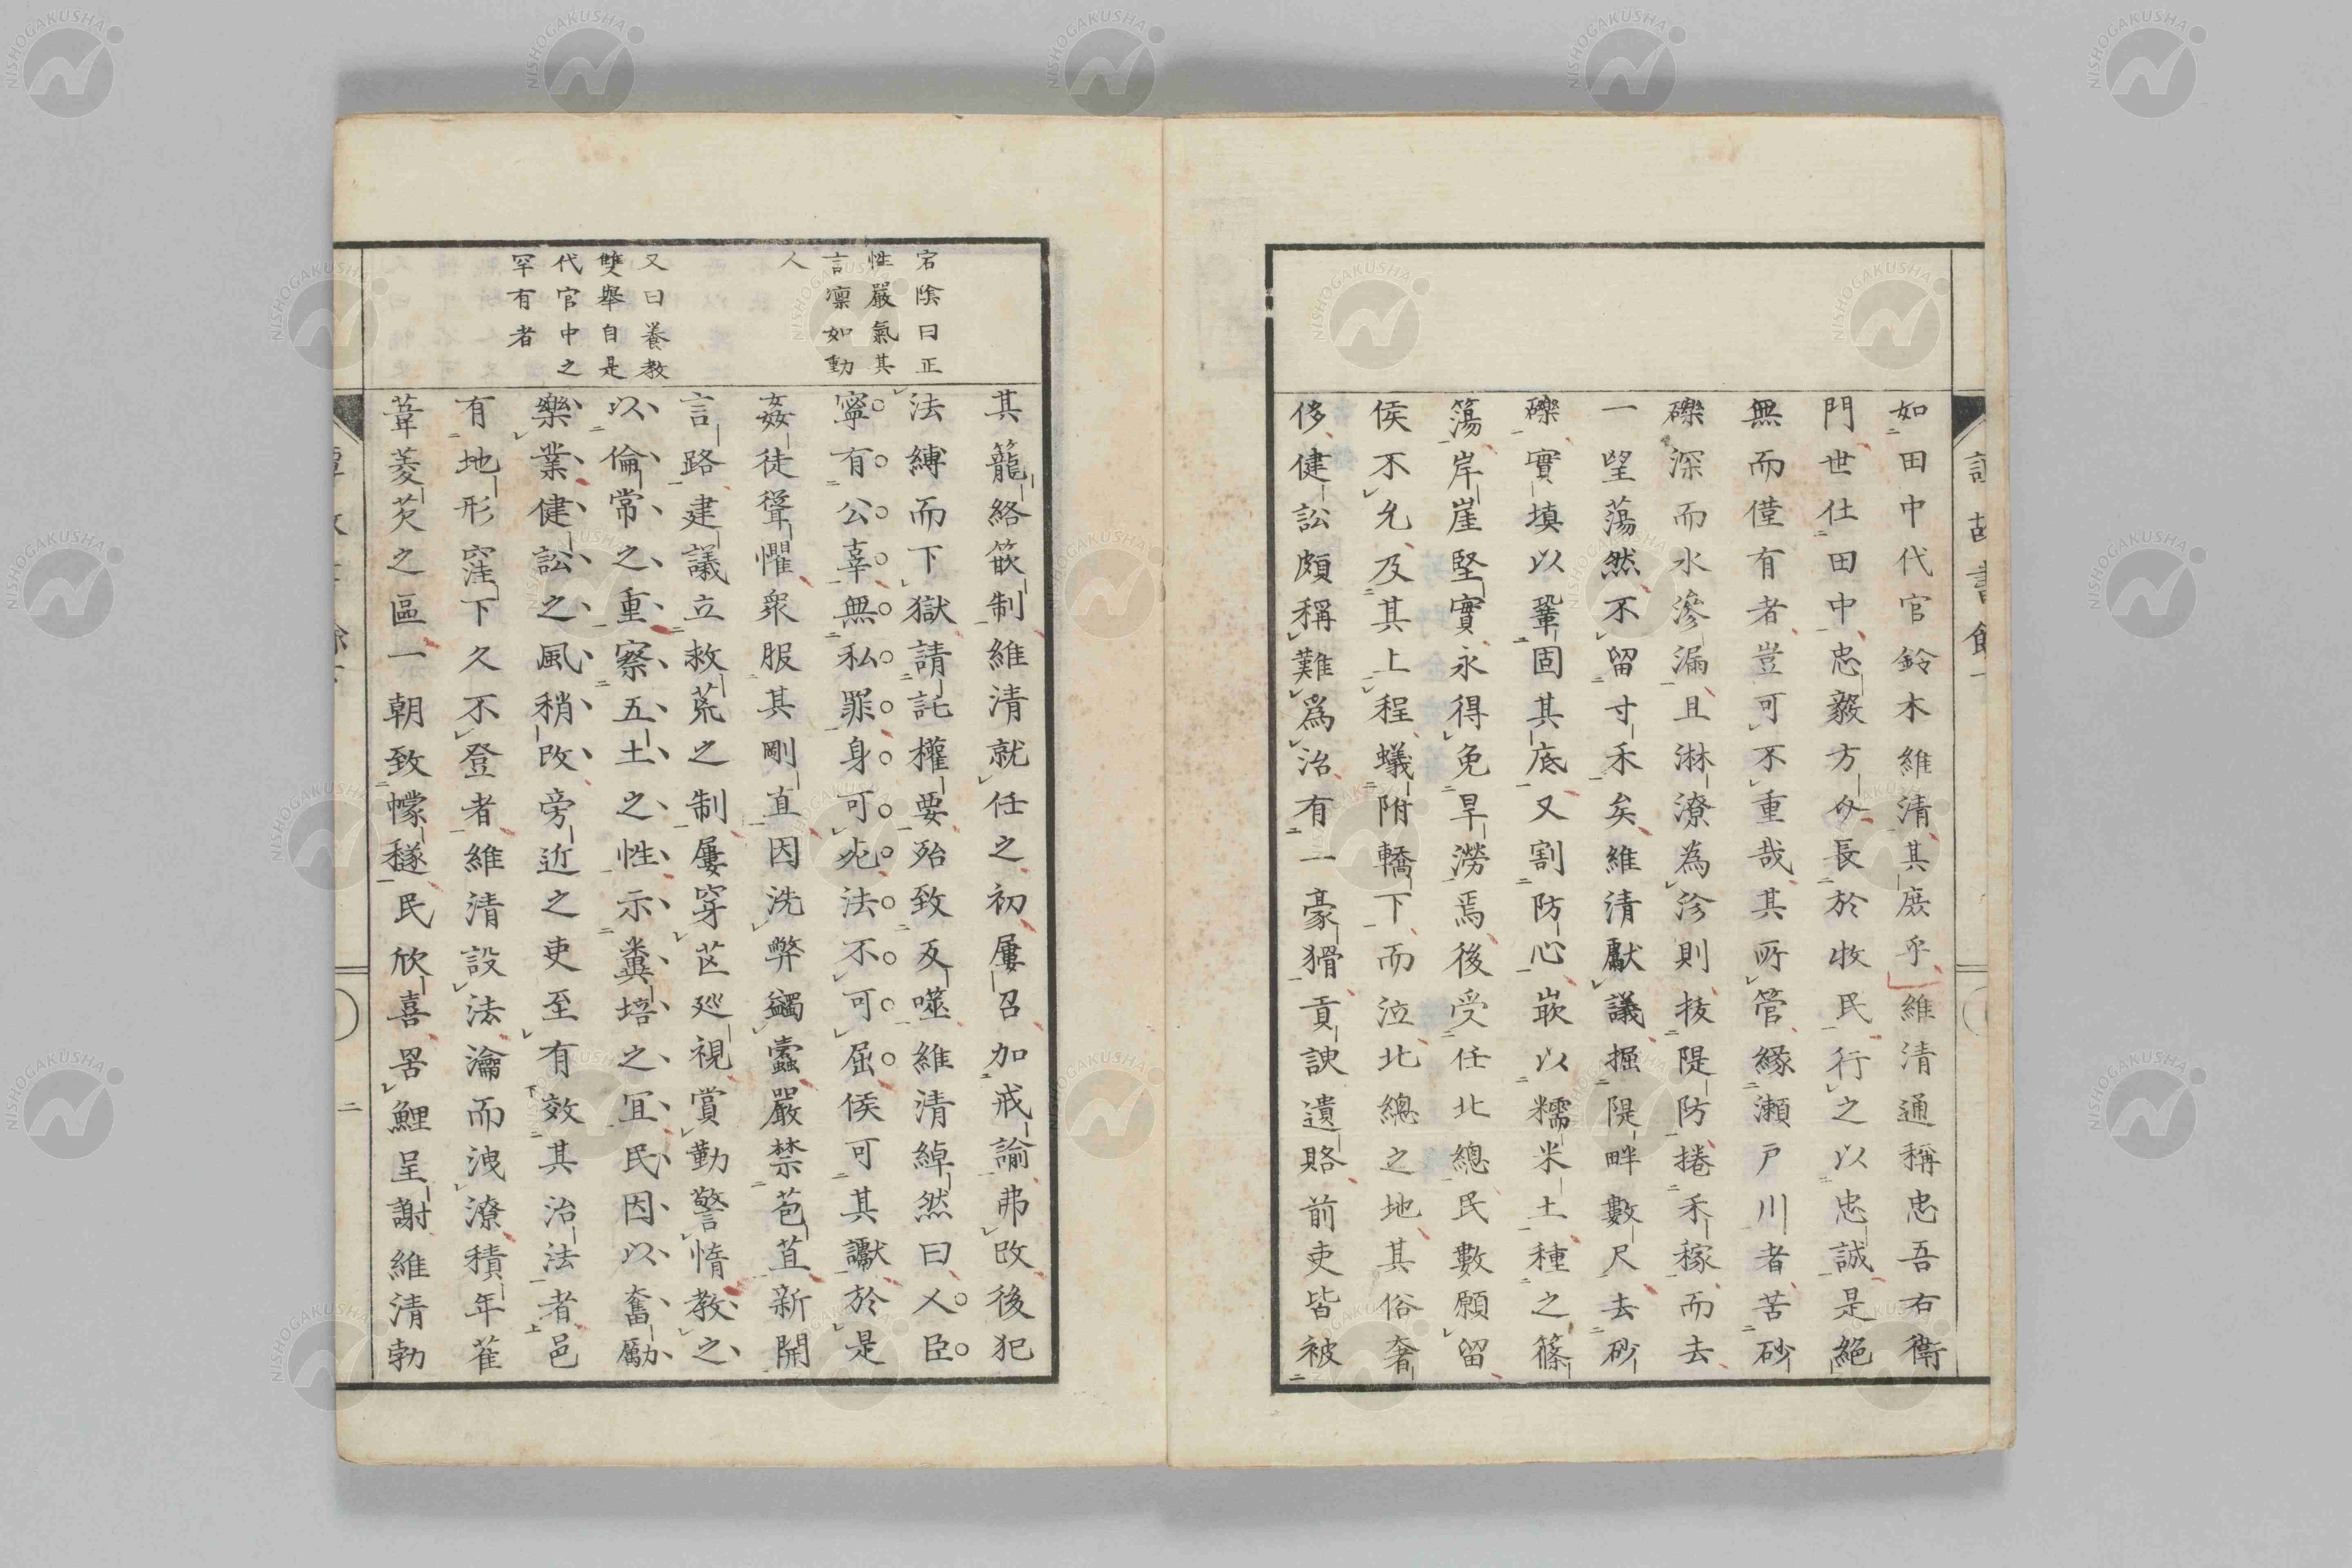 如田中代官鈴木維清其庶乎維清通稱忠吾右衛
門世仕田中忠毅方今長於收民行之以忠誠是絕
無而僅有者豈可不重哉其所管緣瀨戶川者苦砂
礫深而水滲漏且淋潦為沴則拔隄防捲禾稼而去
一望蕩然不留寸禾矣維清獻議掘隄畔數尺去砂
礫實填以鞏固其底又割防心嵌以糯米土種之篠
簜岸崖堅實永得免旱澇焉後受任北總民數願留
侯不允及其上程蟻附轎下而泣北總之地其俗奢
侈健訟頗稱難為治有一豪猾貢諛遺賂前吏皆被
其籠絡箝制維清就任之初屢召加戒諭弗改後犯
法縛而下獄請託權要殆致反噬維清綽然曰人臣
寧有公辜無私罪身可死法不可屈侯可其讞於是
姦徒聳懼眾服其剛直因洗弊蠲蠹嚴禁苞苴新開
言路建議立救荒之制屢穿芒巡視賞勤警惰教之
以倫常之重察五土之性示糞培之宜民因以奮勵
樂業健訟之風稍改旁近之吏至有效其治法者邑
有地形窪下久不登者維清設法瀹而洩潦積年萑
葦菱芡之區一朝致幪穟民欣喜罟鯉呈謝維清勃
宕陰曰正
性嚴氣其
言凜如動
人
又曰養教
雙舉自是
代官中之
罕有者
二